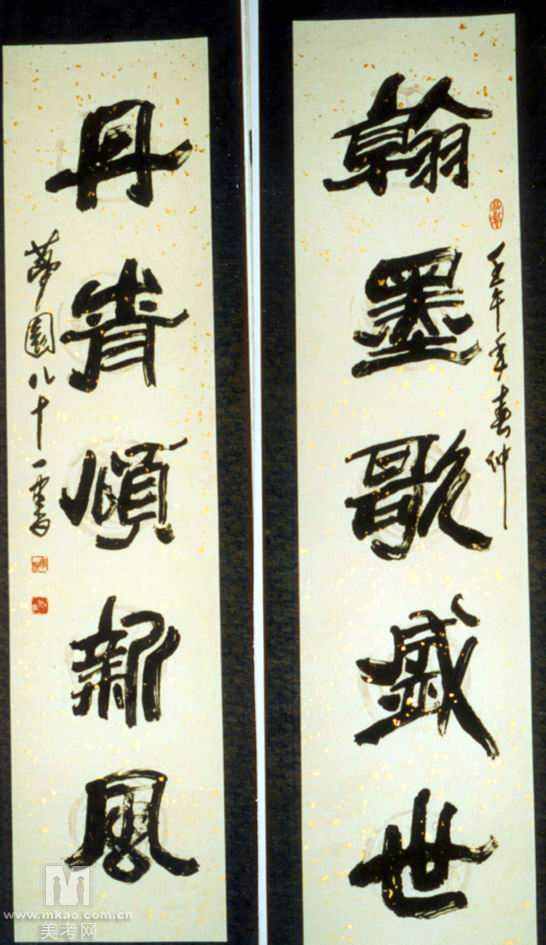 翰墨歌盛世
壬午年春仲
丹青頌新風
夢園八十一書
www.mkao.com.cn
美考网